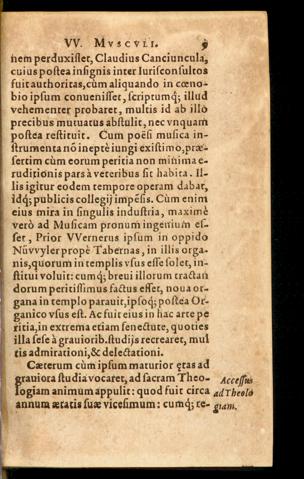 VV. MVSCVLI. 9
nem perduxisſet, Claudius Canciuncula,
cuius poſtea inſignis inter Iuriſconſultos
fuit authoritas, cùm aliquando in cœno-
bio ipſum conueniſſet, ſcriptumq́; illud
vehementer probaret, multis id ab illo
precibus mutuatus abſtulit, nec vnquam
poſtea reſtituit. Cum poëſi muſica in-
ſtrumenta nõ ineptè iungi exiſtimo, præ-
ſertim cùm eorum peritia non minima e-
ruditionis pars à veteribus ſit habita. Il-
lis igitur eodem tempore operam dabat,
idq́; publicis collegij impẽſis. Cùm enim
eius mira in ſingulis induſtria, maximè
verò ad Muſicam pronum ingenium eſ-
ſet, Prior VVernerus ipſum in oppido
Nüvvyler propè Tabernas, in illis orga-
nis, quorum in templis vſus eſſe ſolet, in-
ſtitui voluit: cumq́; breui illorum tractan
dorum peritiſſimus factus eſſet, noua or-
gana in templo parauit, ipſoq́; poſtea Or-
ganico vſus eſt. Ac fuit eius in hac arte pe
ritia, in extrema etiam ſenectute, quoties
illa ſeſe à grauiorib. ſtudijs recrearet, mul
tis admirationi, & delectationi.
Cæterum cùm ipſum maturior ętas ad
grauiora ſtudia vocaret, ad ſacram Theo-
logiam animum appulit: quod fuit circa
annum ætatis ſuæ viceſimum: cumq́; re-
Acceſſus
ad Theolo
giam.